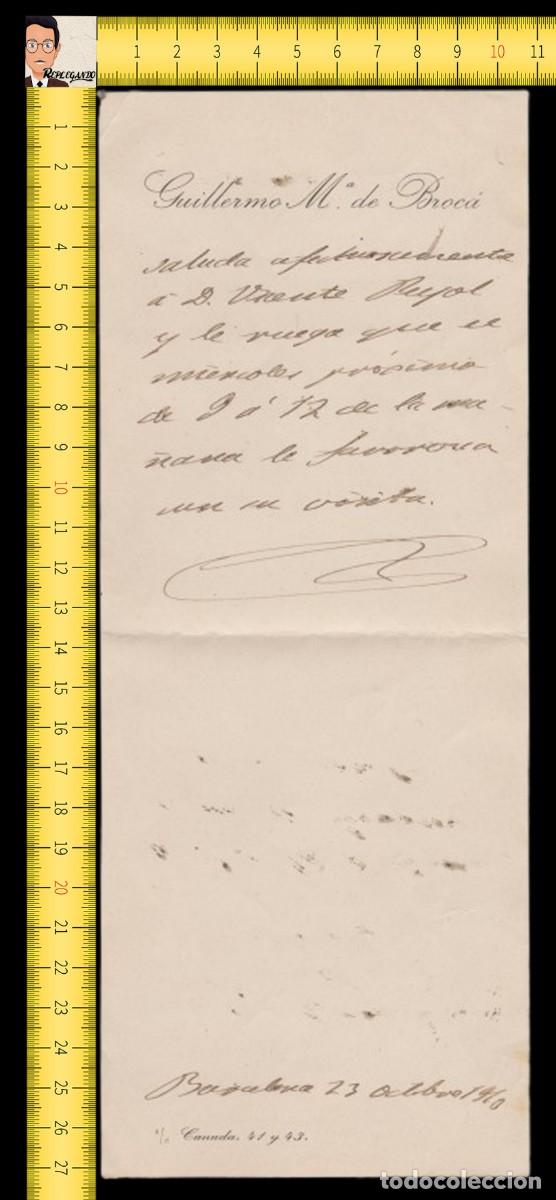 REPLEGANDO
1 2 3 4 5 6 7 8 9 10 11
Guillermo Mª. de Brocá
saluda afectuosamente
á D. Vicente Pujol
y le ruega que el
miercoles próximo
de 9 á 12 de la ma-
ñana le favorezca
con su visita.
Barcelona 23 octubre 1910
s/c Canuda, 41 y 43.
1
2
3
4
5
6
7
8
9
10
11
12
13
14
15
16
17
18
19
20
21
22
23
24
25
26
27
todocoleccion